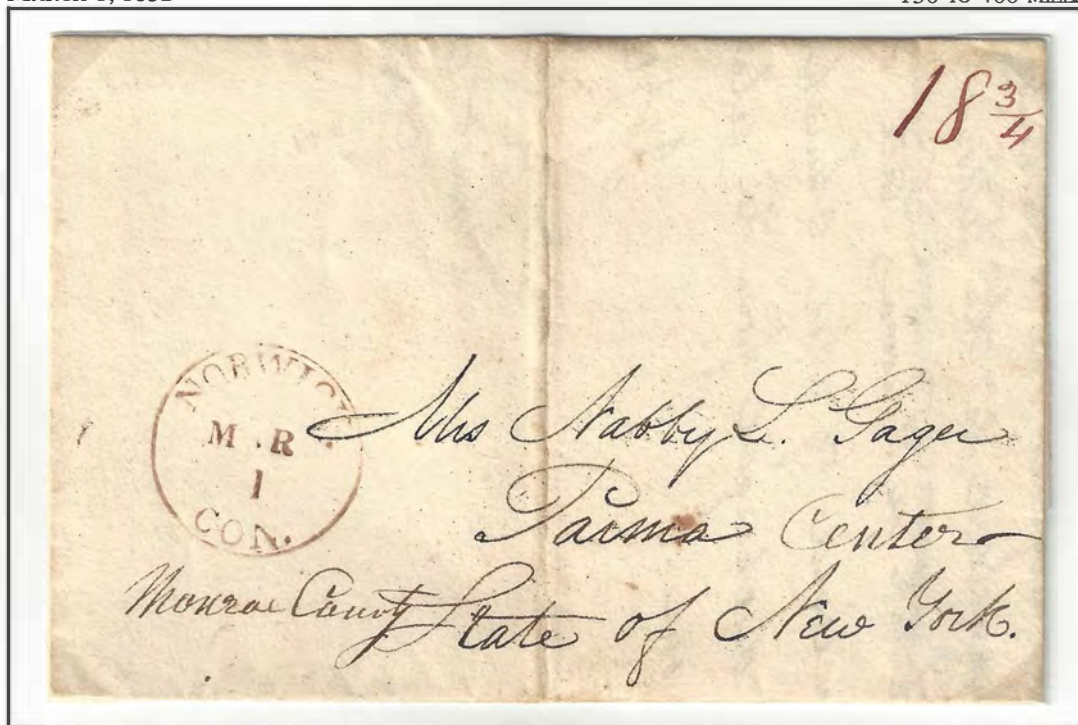 18 3/4
NORWICH
M R
1
CON.
Mrs Nabby L. Gager
Parma Center
Monroe County State of New York.